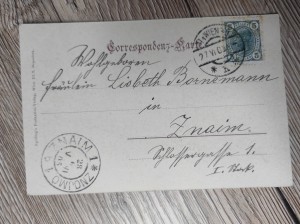 Correspondenz-Karte
Wohlgeboren
Fräulein Lisbeth Bornemann
in
Znaim
Schlossergasse 1.
I. Stock.
ZNAIM 1
ZNOJMO 1